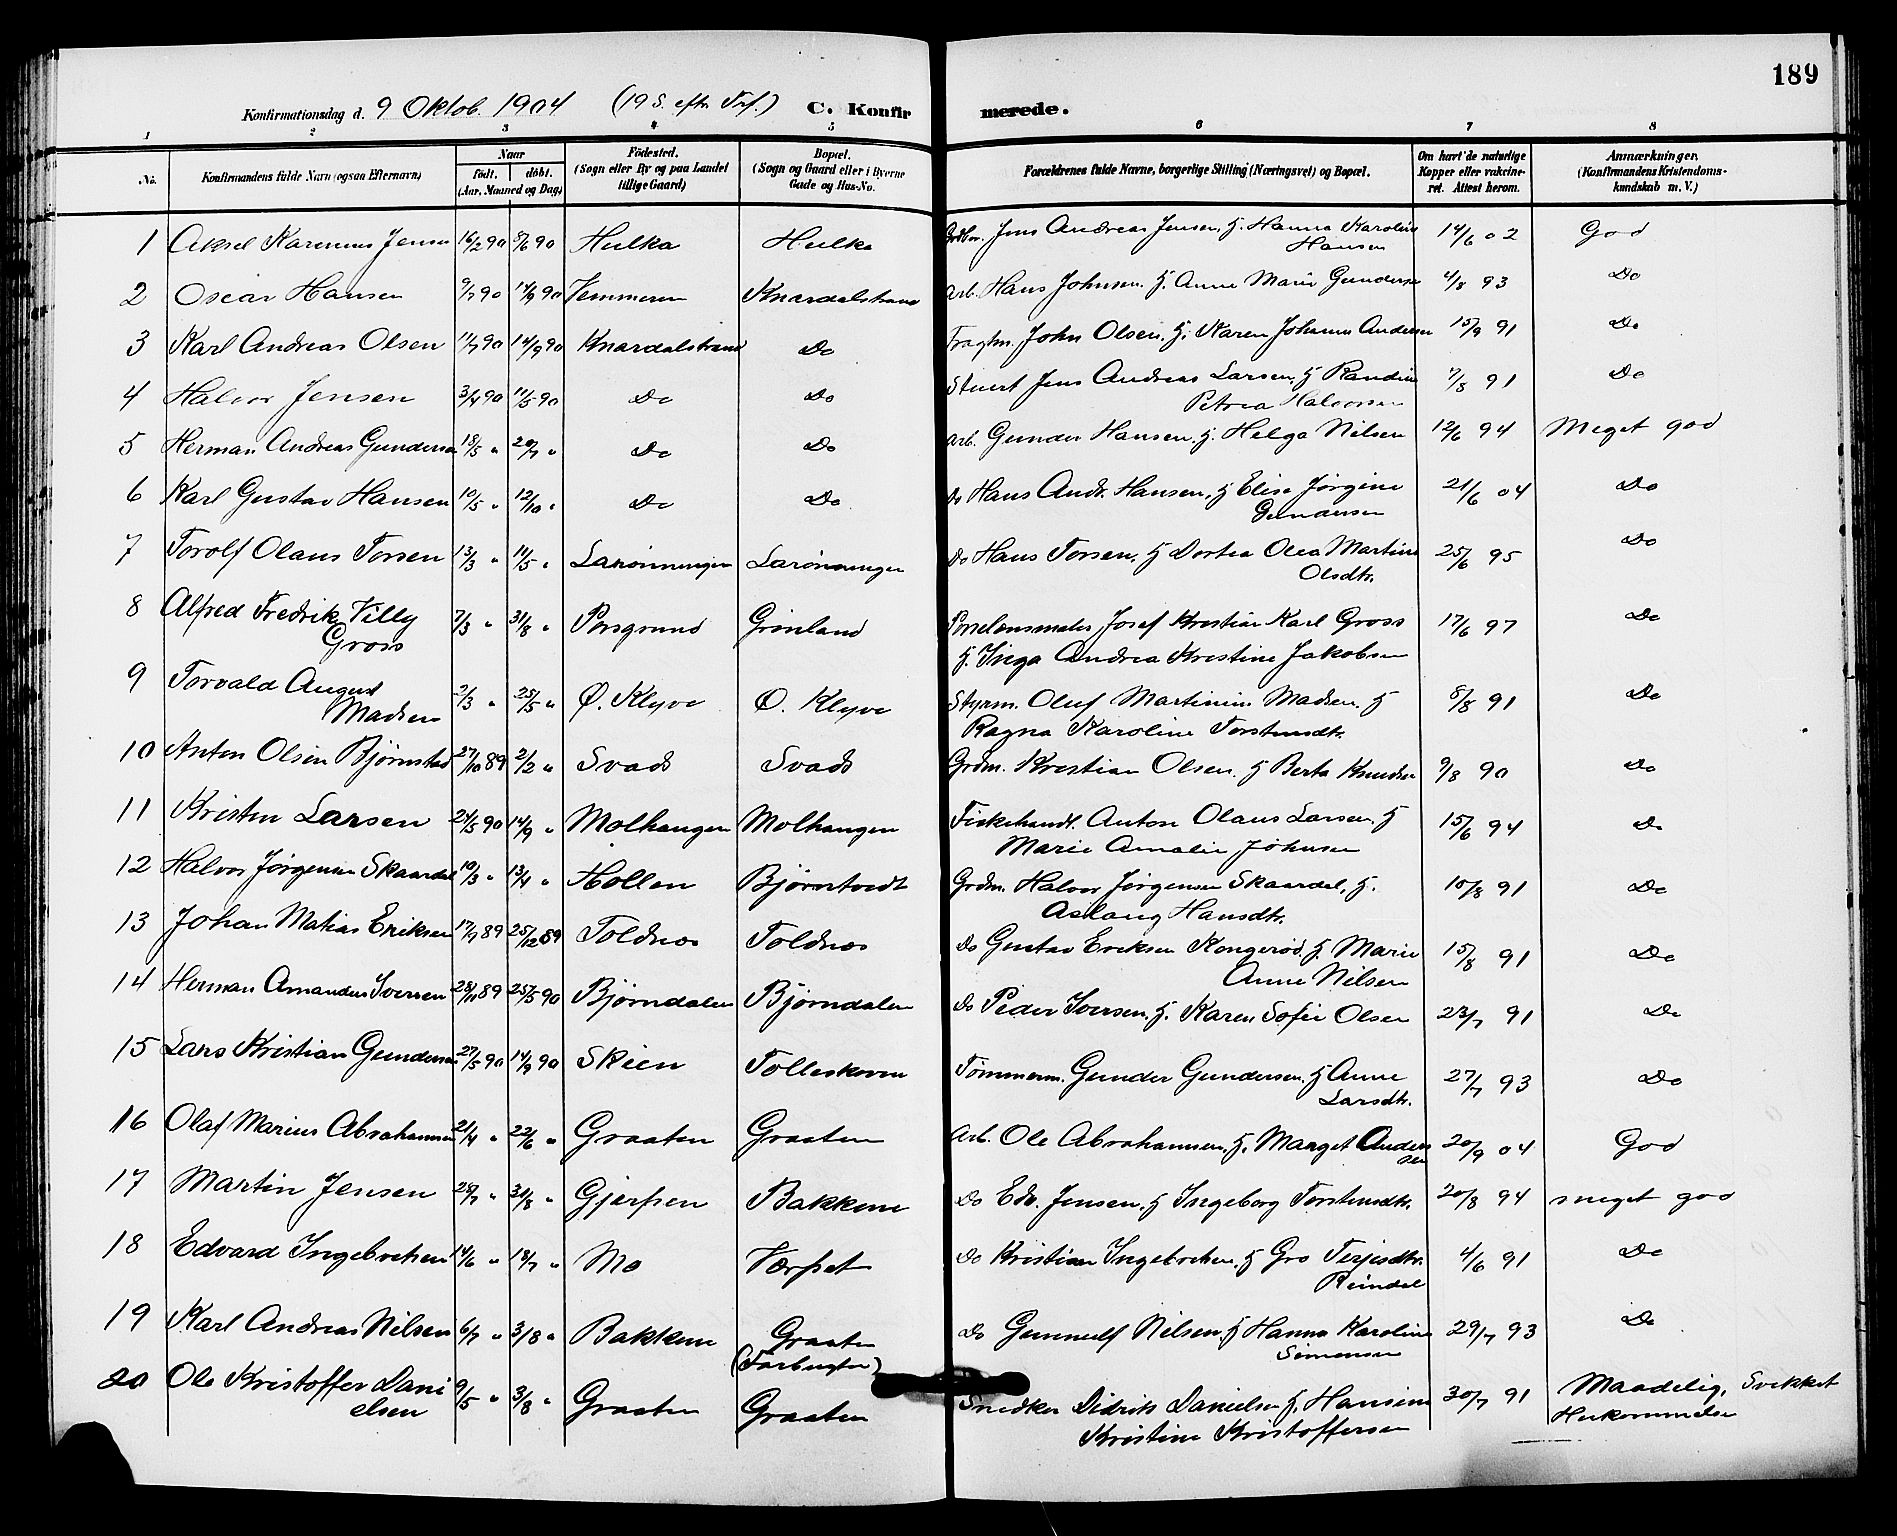 189
Konfirmationsdag d. 9 Oktob. 1904 (19 S. eftr Tref.) C. Konfirmerede.
1 2 3 4 5 6 7 8
No. Konfirmandens fulde Navn (ogsaa Efternavn) Naar født. døbt. (Aar, Maaned og Dag) Fødested. (Sogn eller By og paa Landet tillige Gaard) Bopæl. (Sogn og Gaard eller i Byerne Gade og Hus-No. Forældrenes fulde Navne, borgerlige Stilling (Næringsvei) og Bopæl. Om havt de naturlige Kopper eller vakcineret. Attest herom. Anmærkninger. (Konfirmandens Kristendomskundskab m. V.)
1 Aksel Karenius Jensen 16/2 90 8/6 90 Hulka Hulka Jens Andreas Jensen, H. Hanna Karoline Hansen 14/6 02 God
2 Oscar Hansen 9/7 90 14/9 90 Knardalstrand Arb. Hans Johnsen. H. Anne Marie Gundersen 4/8 93 Do
3 Karl Andreas Olsen 11/7 90 14/9 90 Knardalstrand Do Fragtm. John Olsen. H. Karen Johanne Andersen 15/9 91 Do
4 Halvor Jensen 3/4 90 11/5 90 Do Do Stuert Jens Andreas Larsen. H Randine Petrea Halvorsen 7/8 91 Do
5 Herman Andreas Gundersen 18/5 " 20/7 " Do Do Arb. Gunder Hansen. H. Helga Nilsen 12/6 94 Meget god
6 Karl Gustav Hansen 10/5 " 12/10 " Do Do Do Hans Andr. Hansen, H Elise Jørgine Gundersen 21/6 04 Do
7 Torolf Olaus Torsen 13/3 " 11/5 " Larønningen Larønningen Do Hans Torsen, H Dortea Olea Martine Olsdtr. 25/6 95 Do
8 Alfred Fredrik Villy Gross 7/3 " 31/8 " Porsgrund Grønland Porselensmaler Josef Kristian Karl Gross H. Inga Andrea Kristine Jakobsen 17/6 97 Do
9 Torvald August Madsen 2/3 " 25/5 " Ø. Klyve Ø. Klyve Styrm. Oluf Martinius Madsen. H Ragna Karoline Torstensdtr. 8/8 91 Do
10 Anton Olsen Bjørnstad 27/10 89 2/2 " Svads Svads Grdm. Kristian Olsen. H Berta Knudsen 9/8 90 Do
11 Kristen Larsen 24/5 90 14/9 " Molhaugen Molhaugen Fiskehandl. Anton Olaus Larsen. H Marie Amalie Johnsen 15/6 94 Do
12 Halvor Jørgensen Skaardal 10/3 " 13/4 " Hollen Bjørnstvedt Grdm. Halvor Jørgensen Skaardal, H. Aslaug Hansdtr. 15/8 91 Do
13 Johan Matias Eriksen 17/9 89 25/12 89 Toldnes Toldnes Do Gustav Eriksen Kongerød. H. Marie Anne Nilsen 15/8 91 Do
14 Herman Amandus Iversen 28/11 89 25/5 90 Bjørndalen Bjørndalen Do Peder Iversen. H. Karen Sofie Olsen 23/7 91 Do
15 Lars Kristian Gundersen 27/5 90 14/9 90 Skien Tolleskoven Tømmerm. Gunder Gundersen. H Anne Larsdtr. 27/7 93 Do
16 Olaf Marius Abrahamsen 21/4 " 22/6 " Graaten Graaten Arb. Ole Abrahamsen, H. Marget Andersen 20/9 04 God
17 Martin Jensen 28/7 " 31/8 " Gjerpen Bakkene Do Edv. Jensen. H Ingeborg Torstensdtr. 20/8 94 meget god
18 Edvard Ingebretsen 14/6 " 18/7 " Mo Do Kristian Ingebretsen. H Gro Terjesdtr. Reindal 4/6 91 Do
19 Karl Andreas Nilsen 6/7 " 3/8 " Bakkene Graaten Do Gunnulf Nilsen, H Hanna Karoline Simonsen 29/7 93 Do
20 Ole Kristoffer Danielsen 9/5 " 3/8 " Graaten Graaten Snedker Didrik Danielsen H. Hansine Kristine Kristoffersen 30/7 91 Maadelig, Svekket Hukommelse